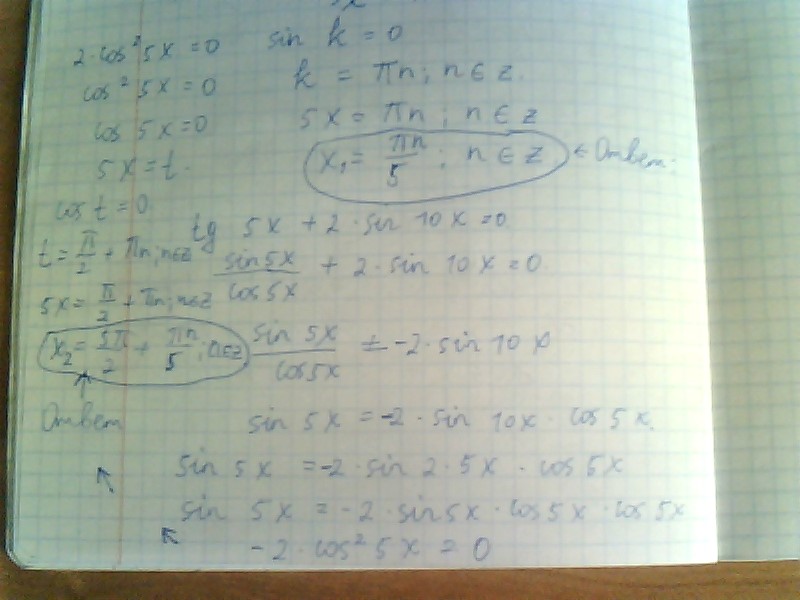 2·cos²5x=0
cos²5x=0
cos 5x=0
5x=t.
cos t=0
t=π/2+πn;n∈z
5x=π/2+πn;n∈z
x₂=5π/2+πn/5;n∈z
Ответ
sin k=0
k=πn;n∈z.
5x=πn;n∈z
x₁=πn/5;n∈z ← Ответ.
tg 5x+2·sin 10x=0
sin5x/cos5x+2·sin 10x=0
sin 5x/cos5x=-2·sin 10x
sin 5x=-2·sin 10x·cos 5x.
sin 5x=-2·sin 2·5x·cos 5x
sin 5x=-2·sin5x·cos5x·cos 5x
-2·cos²5x=0